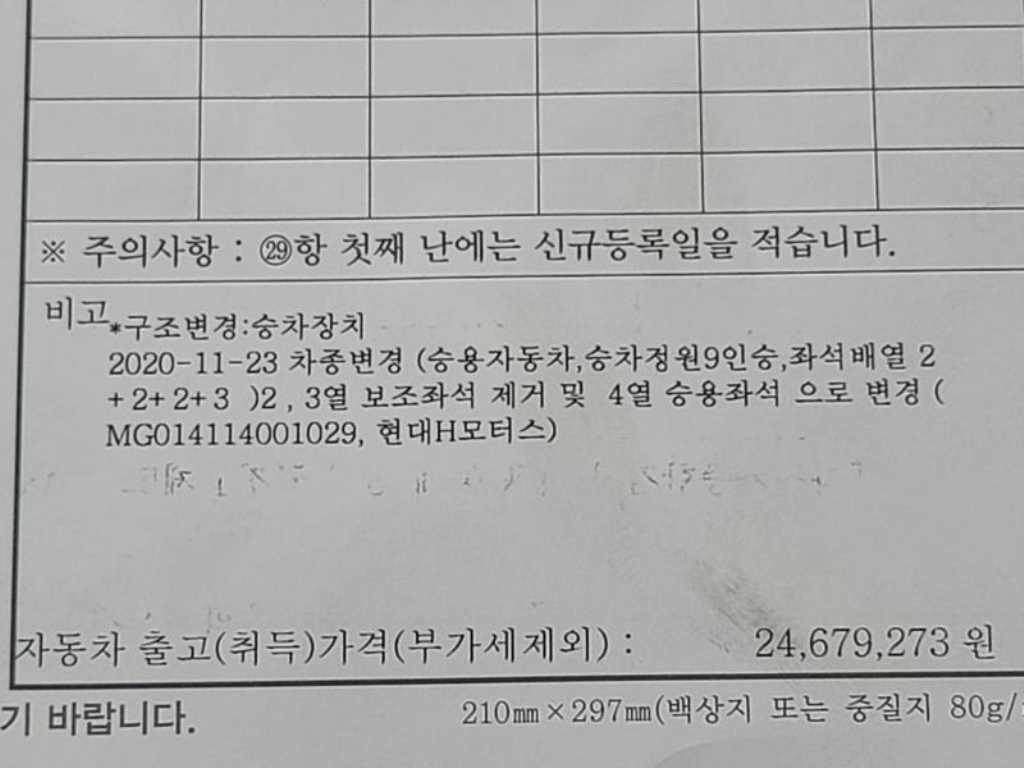 ※ 주의사항 : ㉙항 첫째 난에는 신규등록일을 적습니다.
비고
*구조변경:승차장치
2020-11-23 차종변경 (승용자동차,승차정원9인승,좌석배열 2
+ 2+ 2+ 3 )2 , 3열 보조좌석 제거 및 4열 승용좌석 으로 변경 (
MG014114001029, 현대H모터스)
자동차 출고(취득)가격(부가세제외) : 24,679,273 원
기 바랍니다.
210㎜×297㎜(백상지 또는 중질지 80g/